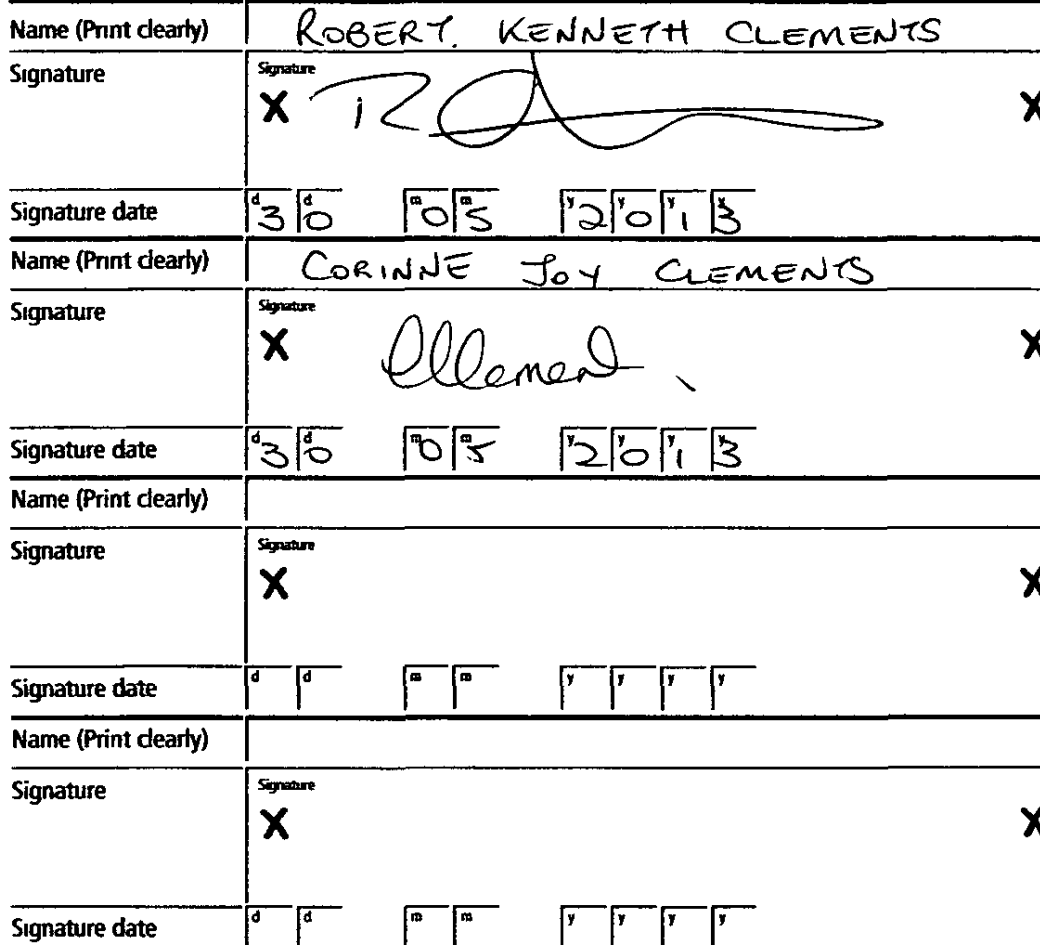 Name (Print clearly) ROBERT. KENNETH CLEMENTS
Signature Signature
X X
Signature date d3 d0 m0 m5 y2 y0 y1 y3
Name (Print clearly) CORINNE JOY CLEMENTS
Signature Signature
X X
Signature date d3 d0 m0 m5 y2 y0 y1 y3
Name (Print clearly)
Signature Signature
X X
Signature date d d m m y y y y
Name (Print clearly)
Signature Signature
X X
Signature date d d m m y y y y